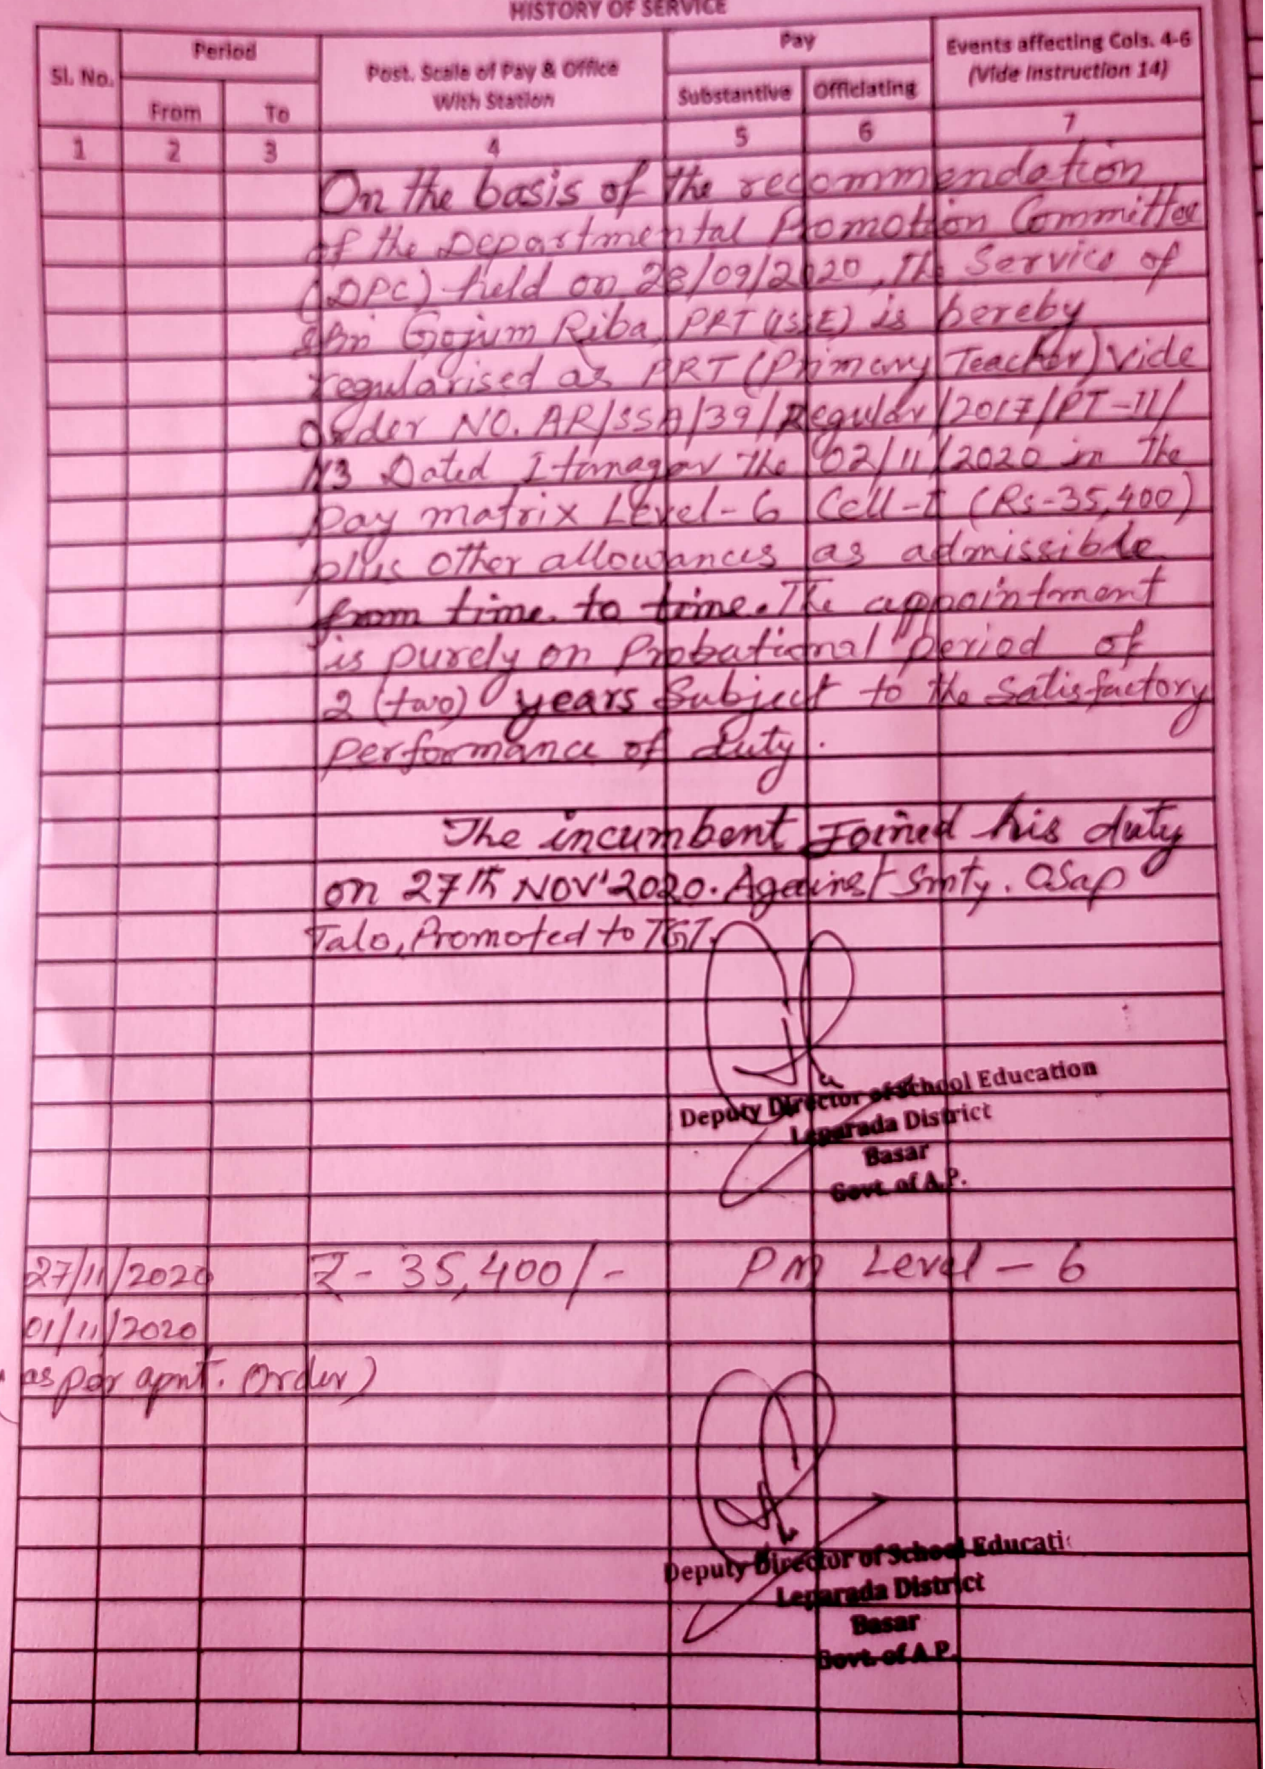 HISTORY OF SERVICE
Sl. No.
Period
Post. Scale of Pay & Office
With Station
Pay
Events affecting Cols. 4-6
(Vide Instruction 14)
From
To
Substantive
Officiating
1
2
3
4
5
6
7
On the basis of the recommendation
of the Departmental Promotion Committee
(DPC) held on 28/09/2020, The Service of
Shri Gojum Riba, PRT (ISSE) is hereby
regularised as PRT (Primary Teacher) vide
order NO. AR/SSA/39/Regular/2017/PT-II/
N3 Dated Itanagar the 02/11/2020 in the
pay matrix Level-6 Cell-I (Rs-35,400)
plus other allowances as admissible
from time to time. The appointment
is purely on Probational period of
2 (two) years Subject to the Satisfactory
performance of duty.
The incumbent Joined his duty
on 27th NOV'2020. Against Smty. Osap
Talo, Promoted to TGT.
Deputy Director of School Education
Leparada District
Basar
Govt. of A.P.
27/11/2020 ₹- 35,400/- PM Level - 6
01/11/2020
(as per apnt. Order)
Deputy Director of School Educati
Leparada District
Basar
Govt. of A.P.